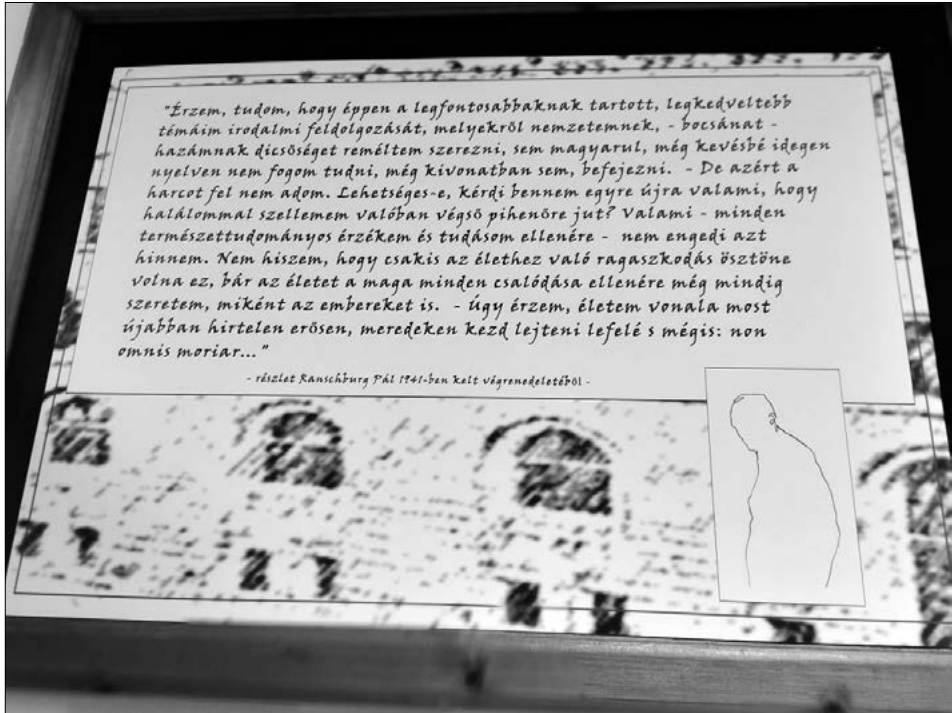 "Érzem, tudom, hogy éppen a legfontosabbaknak tartott, legkedveltebb
témáim irodalmi feldolgozását, melyekről nemzetemnek, - bocsánat -
hazámnak dicsőséget reméltem szerezni, sem magyarul, még kevésbé idegen
nyelven nem fogom tudni, még kivonatban sem, befejezni. - De azért a
harcot fel nem adom. Lehetséges-e, kérdi bennem egyre újra valami, hogy
halálommal szellemem valóban végső pihenőre jut? Valami - minden
természettudományos érzékem és tudásom ellenére - nem engedi azt
hinnem. Nem hiszem, hogy csakis az élethez való ragaszkodás ösztöne
volna ez, bár az életet a maga minden csalódása ellenére még mindig
szeretem, miként az embereket is. - Úgy érzem, életem vonala most
újabban hirtelen erősen, meredeken kezd lejteni lefelé s mégis: non
omnis moriar..."
- részlet Ranschburg Pál 1941-ben kelt végrenedeletéből -